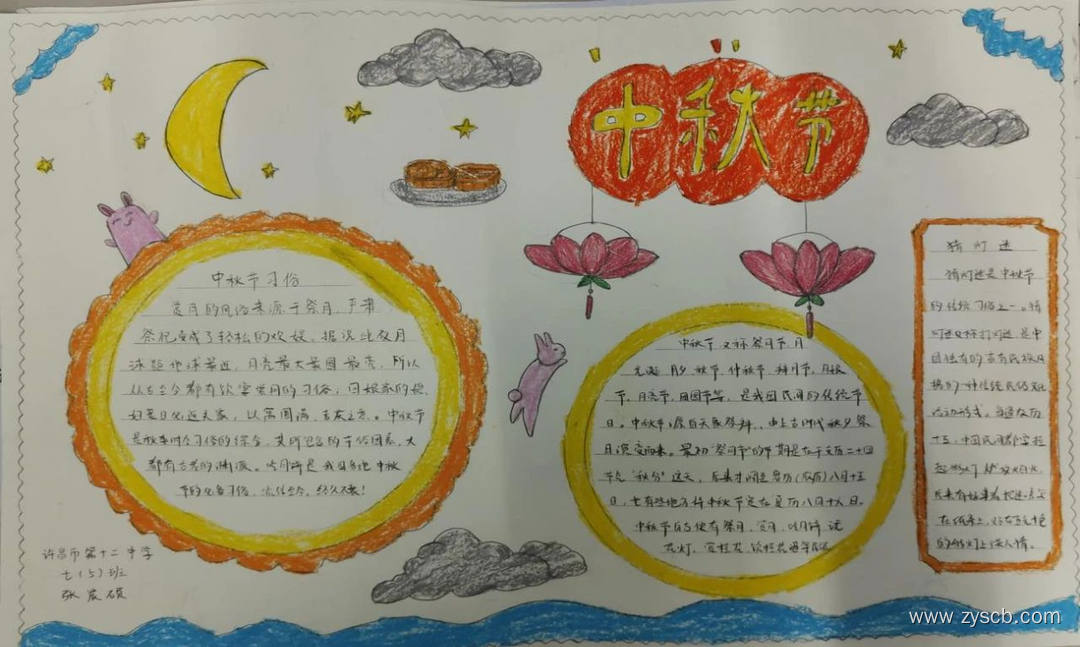 中秋节
中秋节习俗
赏月的风俗来源于祭月，严肃
祭祀变成了轻松的欢娱。据说此夜月
球距地球最近，月亮最大最圆最亮，所以
从古至今都有饮宴赏月的习俗；回娘家的媳
妇是日必返夫家，以寓圆满、吉庆之意。中秋节
是秋季时令习俗的综合，其所包含的节俗因素，大
都有古老的渊源。吃月饼是我国各地中秋
节的必备习俗，流传至今，经久不衰！
许昌市第十二中学
七（5）班
张宸硕
中秋节又称祭月节、月
光诞、月夕、秋节、仲秋节、拜月节、月娘
节、月亮节、团圆节等，是我国民间的传统节
日。中秋节源自天象崇拜，由上古时代秋夕祭
月演变而来。最初"祭月节"的节期是在干支历二十四
节气"秋分"这天，后来才调至夏历（农历）八月十五
日，也有些地方将中秋节定在夏历八月十六日。
中秋节自古便有祭月、赏月、吃月饼、玩
花灯、赏桂花、饮桂花酒等民俗
猜灯谜
猜灯谜是中秋节
的传统习俗之一。猜
灯谜又称打灯谜，是中
国独有的富有民族风
格的一种传统民俗文化
活动形式。每逢农历
十五，中国民间都要挂
起彩灯，燃放焰火，
后来有好事者把谜语写
在纸条上，贴在五光十色
的彩灯上供人猜。
www.zyscb.com